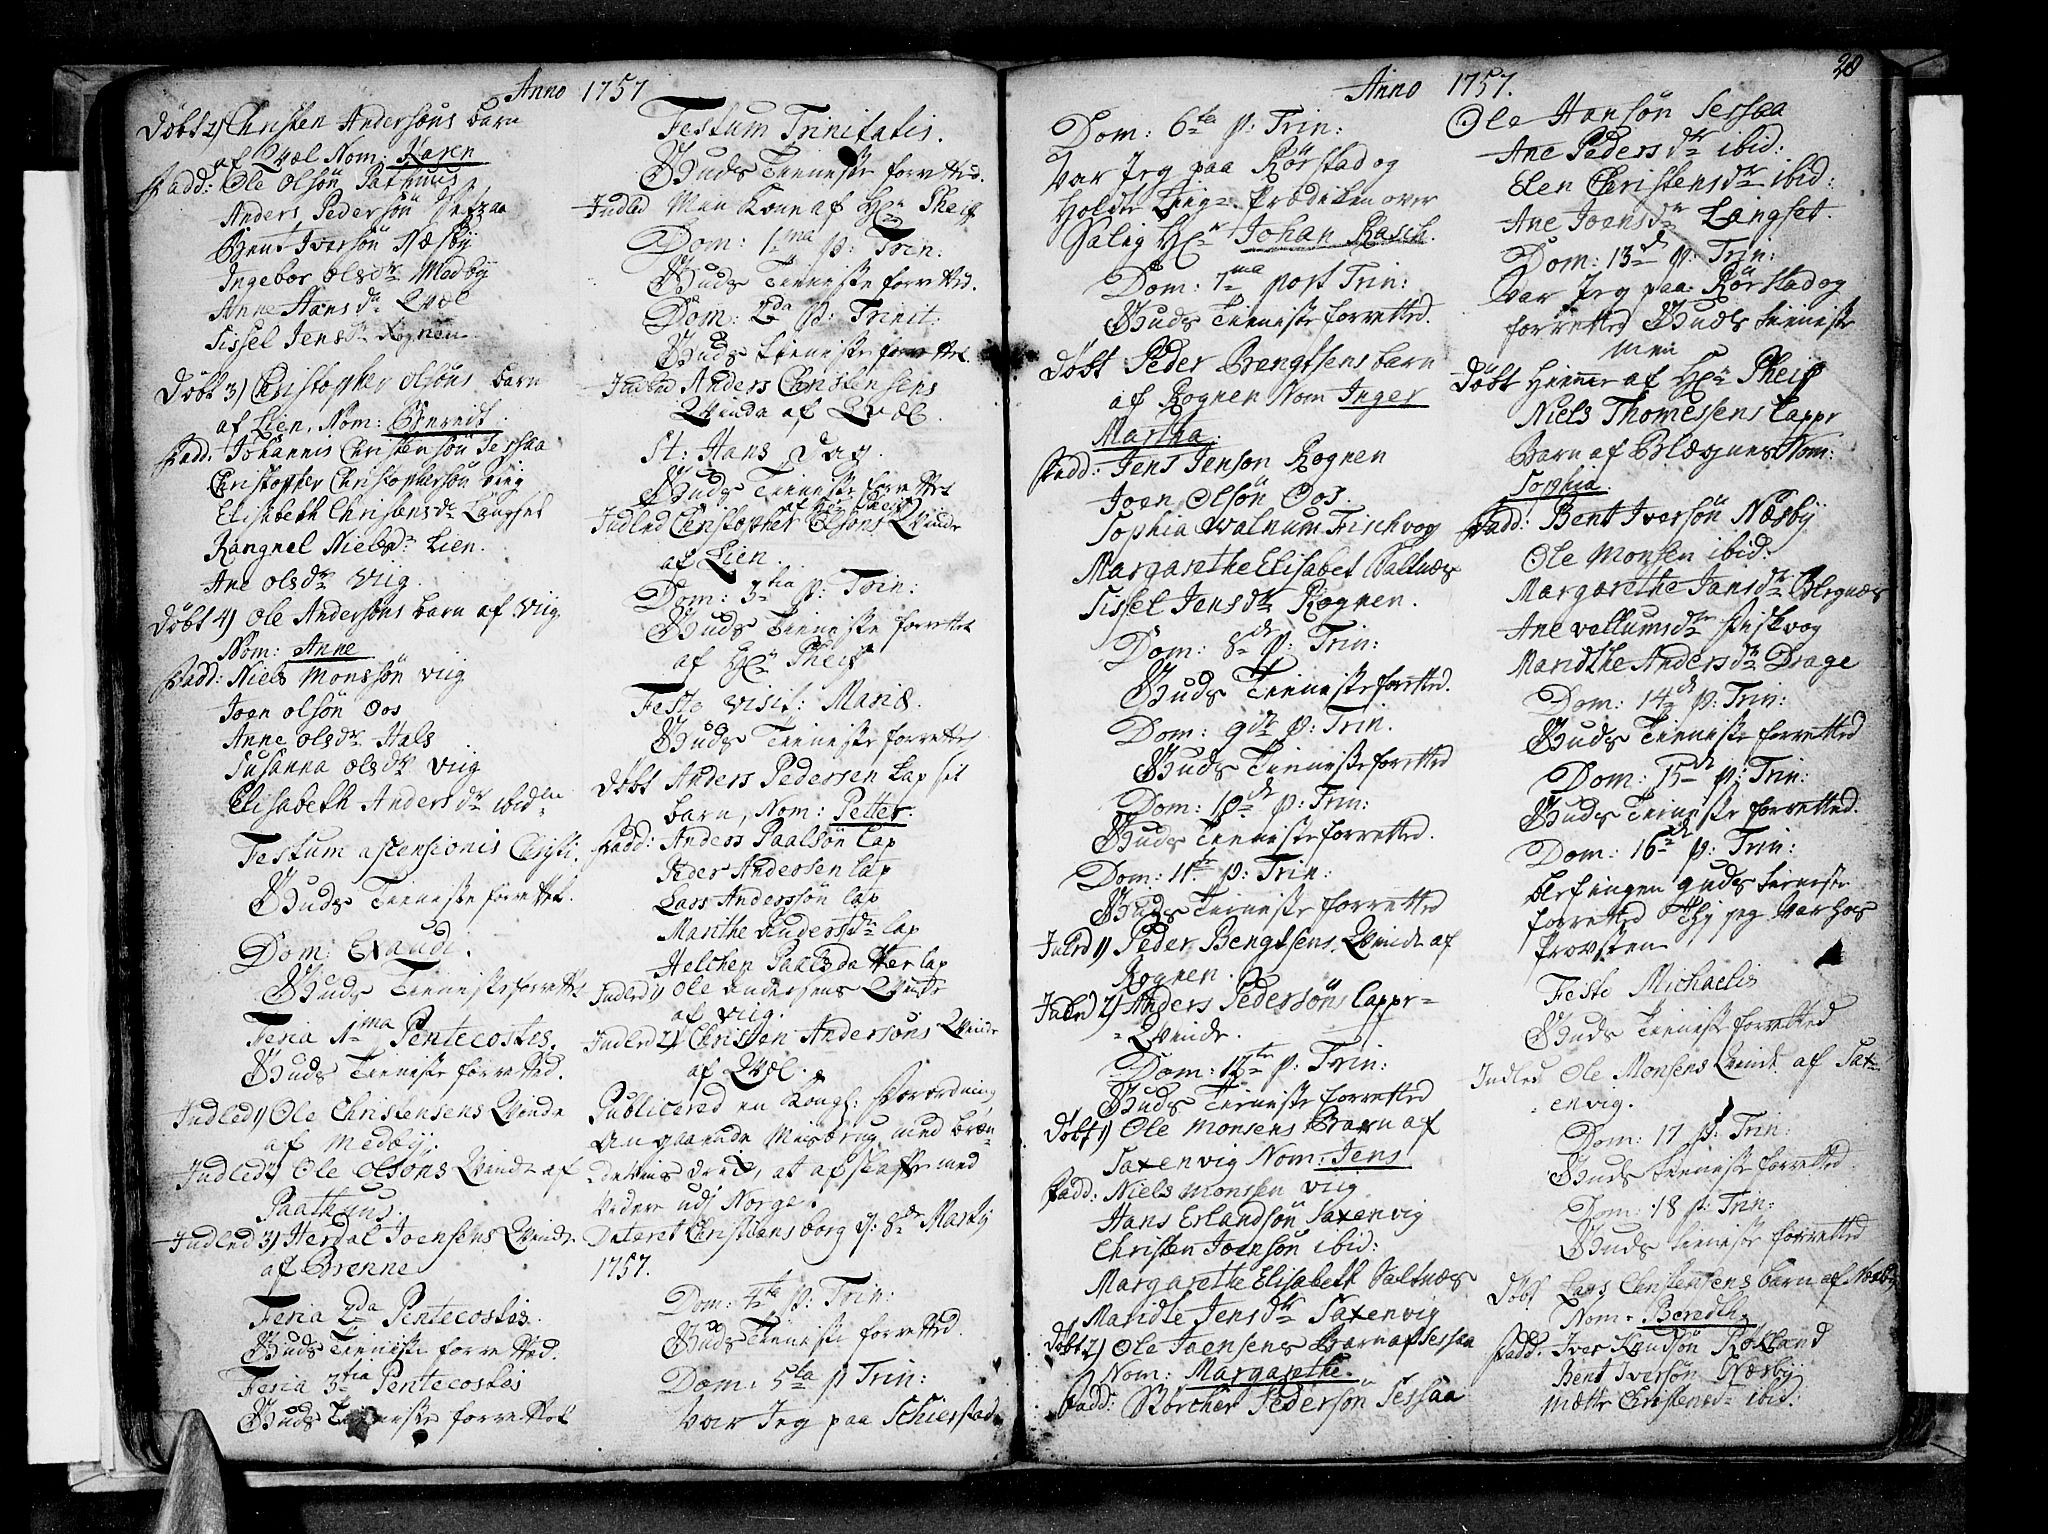 Anno 1757
Døbt 2) Christen Andersøns barn
af Qvæl Nom: Karen
Fadd: Ole Olsøn Pathuus
Anders Pedersøn
Bent Iversøn Næsby
Ingebor Olsdr Medby
Anne Hansdr Qvæl
Sissel Jensdr Rognen
Døbt 3) Christopher Olsøns barn
af Lien, Nom: Berendt
Fadd: Johannis Christensøn Sessaa
Christopher Christophersøn Viig
Elisabeth Christensdr Langset
Rangnel Nielsdr Lien.
Ane Olsdr Viig.
Døbt 4) Ole Andersøns barn af Viig
Nom: Anne
Fadd: Niels Monssøn Viig
Joen Olsøn Oos
Anne Olsdr Hals
Susanna Olsdr Viig
Elisabeth Andersdr ibidem
Festum ascensionis Christi.
Guds Tienniste forrettet.
Dom: Exaudi.
Guds Tienniste forrettet
Feria 1ma Pentecostes.
Guds Tienniste forretted.
Indled 1) Ole Christensens Qvinde
af Medby.
Indled 2) Ole Olsøns Qvinde af
Paathuus.
Indled 3) Herdal Joensens Qvinde
af Brenne
Feria 2da Pentecostes.
Guds Tienniste forretted.
Feria 3tia Pentecostes
Guds Tienniste forrettet
Festum Trinitatis.
Guds Tienniste forretted.
Indled Man Kone af Hr Pheif
Dom: 1ma p: Trin:
Guds Tienniste forretted.
Dom: 2da p: Trinit:
Guds Tienniste forrettet
Indled Anders Christensens
Qvinde af Qvæl.
St: Hans Dag.
Guds Tienniste forrettet
af Hr Pheif
Indled Christopher Olsøns Qvinde
af Lien.
Dom: 3tia p: Trin:
Guds Tienniste forrettet
af Hr Pheif
Festo Visit: Mariæ.
Guds Tienniste forrettet
Døbt Anders Pedersen Lap sit
barn, Nom: Petter.
Fadd: Anders Paalsøn Lap
Peder Andersen Lap
Lars Anderssøn Lap
Marithe Andersdr Lap
Helchen Paalsdatter Lap
Indled 1) Ole Andersens Qvinde
af Viig.
Indled 2) Christen Andersøns Qvinde
af Qvæl.
Publicered en Kongl: Forordning
Angaaende Misbrug med
at afskaffe med
Videre udj Norge.
Dateret Christiansborg d: 8de Martj
1757.
Dom: 4ta p: Trin:
Guds Tienniste forretted.
Dom: 5ta p Trin:
Var Jeg paa Schierstad
Anno 1757.
20
Dom: 6ta p: Trin:
Var Jeg paa Rørstad og
holdte Liig-Prædiken over
Salig Hr Johan Rasch.
Dom: 7ma post Trin:
Guds Tienniste forretted.
Døbt Peder Bengtsens barn
af Rognen Nom Inger
Martha.
Fadd: Jens Jenson Rognen
Joen Olsøn Oos.
Sophia Walnum Fischvog
Margarethe Elisabet Saltnæs
Sissel Jensdr Rognen.
Dom: 8de p: Trin:
Guds Tienniste forretted.
Dom: 9de p: Trin.
Guds Tienniste forretted
Dom: 10de p: Trin:
Guds Tienniste forretted.
Dom: 11te p: Trin:
Guds Tienniste forretted
Indled 1) Peder Bengtsens Qvinde af
Rognen.
Indled 2) Anders Pedersøns Lappe-
-Qvinde.
Dom: 12te p: Trin:
Guds Tienniste forretted
Døbt 1) Ole Monsens Barn af
Saxenvig Nom: Jens
Fadd: Niels Monssen Viig
Hans Erlandsøn Saxenvig
Christen Joensøn ibid:
Margaretha Elisabeth Saltnæs
Maridte Jensdr Saxenvig
Døbt 2) Ole Joensens Barn af Sessaa
Nom: Margarethe.
Fadd: Børcher Pedersøn Sessaa
Ole Hansøn Sessaa
Ane Pedersdr ibid:
Elen Christensdr ibid:
Ane Joensdr Langset.
Dom: 13de p: Trin:
Var Jeg paa Rørstad og
forretted Guds Tienniste
men
Døbt Hiemme af Hr Pheif
Niels Thomessens Lappe
Barn af Blæsgnes Nom:
Sophia.
Fadd: Bent Iversøn Næsby
Ole Monsen ibid:
Margarethe Jansdr
Ane Veltumsdr Fiskvog
Maridthe Andersdr Drage
Dom: 14de p: Trin:
Guds Tienniste forretted
Dom: 15de p: Trin:
Guds Tienniste forretted.
Dom: 16de p: Trin:
blef ingen guds tieneste
forretted Thj jeg var hos
Provsten
Festo Michaelis
Guds Tienniste forretted
Indled Ole Monsens Qvinde af Sax-
-envig.
Dom: 17 p: Trin:
Guds Tienniste forretted
Dom: 18 p: Trin:
Guds Tienniste forretted
Døbt Lars Christensens barn af Næsby
Nom: Beredth
Fadd: Iver Knudsøn Rokland
Bent Iversøn Næsby
Mætte Christensdr ibid: